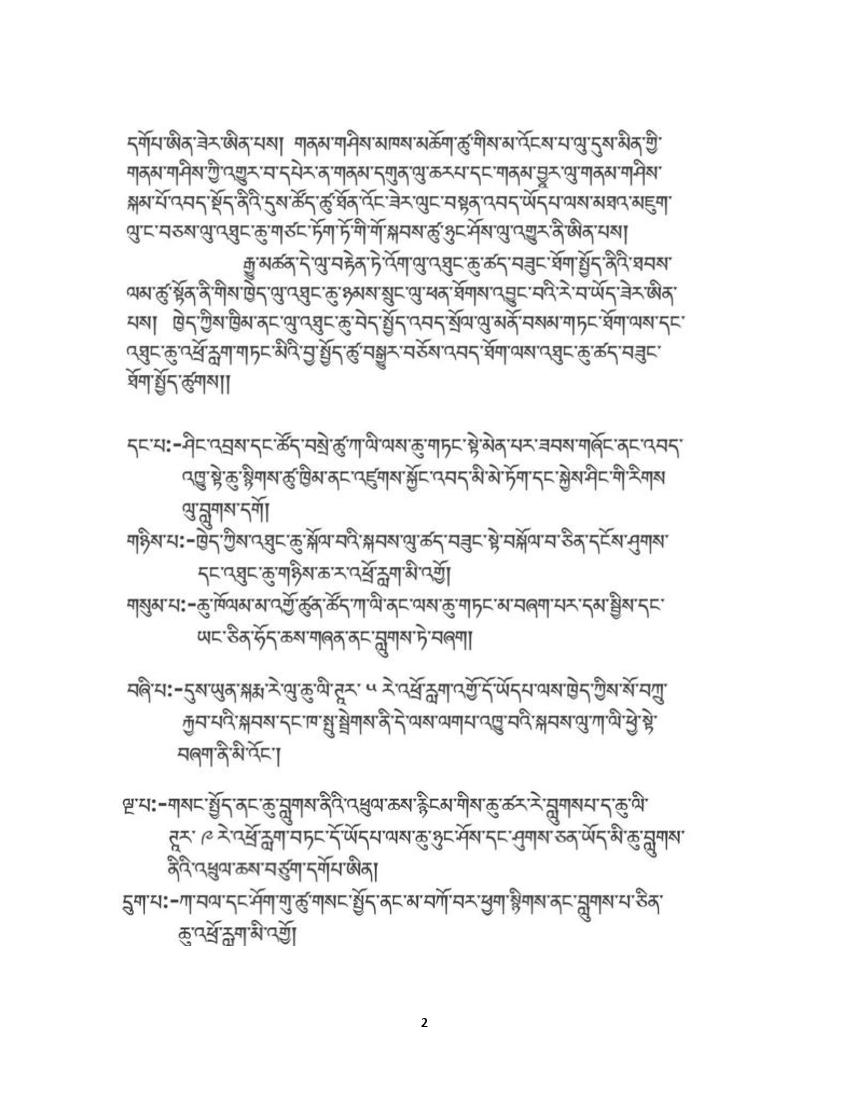 དགོཔ་ཨིན་ཟེར་ཨིན་པས། གནམ་གཤིས་མཁས་མཆོག་ཚུ་གིས་མ་འོངས་པ་ལུ་དུས་མིན་གྱི་
གནམ་གཤིས་ཀྱི་འགྱུར་བ་དཔེར་ན་གནམ་དགུན་ལུ་ཆརཔ་དང་གནམ་བྱཱར་ལུ་གནམ་གཤིས་
སྐམ་པོ་འབད་སྡོད་ནིའི་དུས་ཚོད་ཚུ་ཐོན་འོང་ཟེར་ལུང་བསྟན་འབད་ཡོདཔ་ལས་མཐའ་མཇུག་
ལུ་ང་བཅས་ལུ་འཐུང་ཆུ་གཙང་ཏོག་ཏོ་གི་གོ་སྐབས་ཚུ་ཉུང་ཤོས་ལུ་འགྱུར་ནི་ཨིན་པས།
རྒྱུ་མཚན་དེ་ལུ་བརྟེན་ཏེ་འོག་ལུ་འཐུང་ཆུ་ཚད་བཟུང་ཐོག་སྤྱོད་ནིའི་ཐབས་
ལམ་ཚུ་སྟོན་ནི་གིས་ཁྱེད་ལུ་འཐུང་ཆུ་ཉམས་སྲུང་ལུ་ཕན་ཐོགས་འབྱུང་བའི་རེ་བ་ཡོད་ཟེར་ཨིན་
པས། ཁྱེད་ཀྱིས་ཁྱིམ་ནང་ལུ་འཐུང་ཆུ་བེད་སྤྱོད་འབད་སྲོལ་ལུ་མནོ་བསམ་གཏང་ཐོག་ལས་དང་
འཐུང་ཆུ་འཕྲོ་རླག་གཏང་མིའི་བྱ་སྤྱོད་ཚུ་བསྒྱུར་བཅོས་འབད་ཐོག་ལས་འཐུང་ཆུ་ཚད་བཟུང་
ཐོག་སྤྱོད་ཚུགས།།
དང་པ:-ཤིང་འབྲས་དང་ཚོད་བསྲེ་ཚུ་ཀ་ལི་ལས་ཆུ་གཏང་སྟེ་མེན་པར་ཟབས་གཞོང་ནང་འབད་
འཁྱུ་སྟེ་ཆུ་སྙིགས་ཚུ་ཁྱིམ་ནང་འཛུགས་སྐྱོང་འབད་མི་མེ་ཏོག་དང་སྐྱེས་ཤིང་གི་རིགས
ལུ་བླུགས་དགོ།
གཉིས་པ:-ཁྱེད་ཀྱིས་འཐུང་ཆུ་སྐོལ་བའི་སྐབས་ལུ་ཚད་བཟུང་སྟེ་བསྐོལ་བ་ཅིན་དངོས་ཤུགས་
དང་འཐུང་ཆུ་གཉིས་ཆ་ར་འཕྲོ་རླག་མི་འགྱོ།
གསུམ་པ:-ཆུ་ཁོལམ་མ་འགྱོ་ཚུན་ཚོད་ཀ་ལི་ནང་ལས་ཆུ་གཏང་མ་བཞག་པར་དམ་སྦྱིས་དང་
ཡང་ཅིན་ཧོད་ཆས་གཞན་ནང་བླུགས་ཏེ་བཞག།
བཞི་པ:-དུས་ཡུན་སྐརྨ་རེ་ལུ་ཆུ་ལི་ཊཱར་ ༥ རེ་འཕྲོ་རླག་འགྱོ་དོ་ཡོདཔ་ལས་ཁྱེད་ཀྱིས་སོ་བཀྲུ་
རྐྱབ་པའི་སྐབས་དང་ཁ་སྤུ་སྦྲེགས་ནི་དེ་ལས་ལགཔ་འཁྱུ་བའི་སྐབས་ལུ་ཀ་ལི་ཕྱེ་སྟེ་
བཞག་ནི་མི་འོང་།
ལྔ་པ:-གསང་སྤྱོད་ནང་ཆུ་བླུགས་ནིའི་འཕྲུལ་ཆས་རྙིངམ་གིས་ཆུ་ཚར་རེ་བླུགསཔ་ད་ཆུ་ལི་
ཊཱར་ ༩ རེ་འཕྲོ་རླག་བཏང་དོ་ཡོདཔ་ལས་ཆུ་ཉུང་ཤོས་དང་ཤུགས་ཅན་ཡོད་མི་ཆུ་བླུགས་
ནིའི་འཕྲུལ་ཆས་བཙུག་དགོཔ་ཨིན།
དྲུག་པ:-ཀ་བལ་དང་ཤོག་གུ་ཚུ་གསང་སྤྱོད་ནང་མ་བཀོ་བར་ཕྱག་སྙིགས་ནང་བླུགས་པ་ཅིན་
ཆུ་འཕྲོ་རླག་མི་འགྱོ།
2